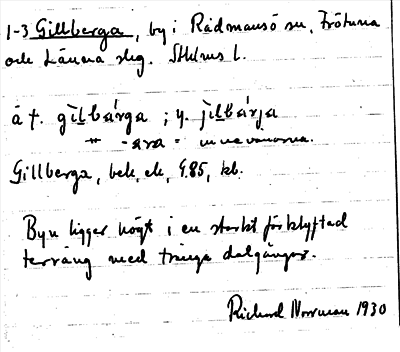 1-3 Gillberga, by i Rådmansö sn, Frötuna
och Länna slg. Sthlms l.
ä f. gìlbárga ; y. jìlbárja
" -ara - invånarna.
Gillberga, bek, ek, G85, kb.
Byn ligger högt i en starkt förklyftad
terräng med trånga dalgångar.
Richard Norrman 1930